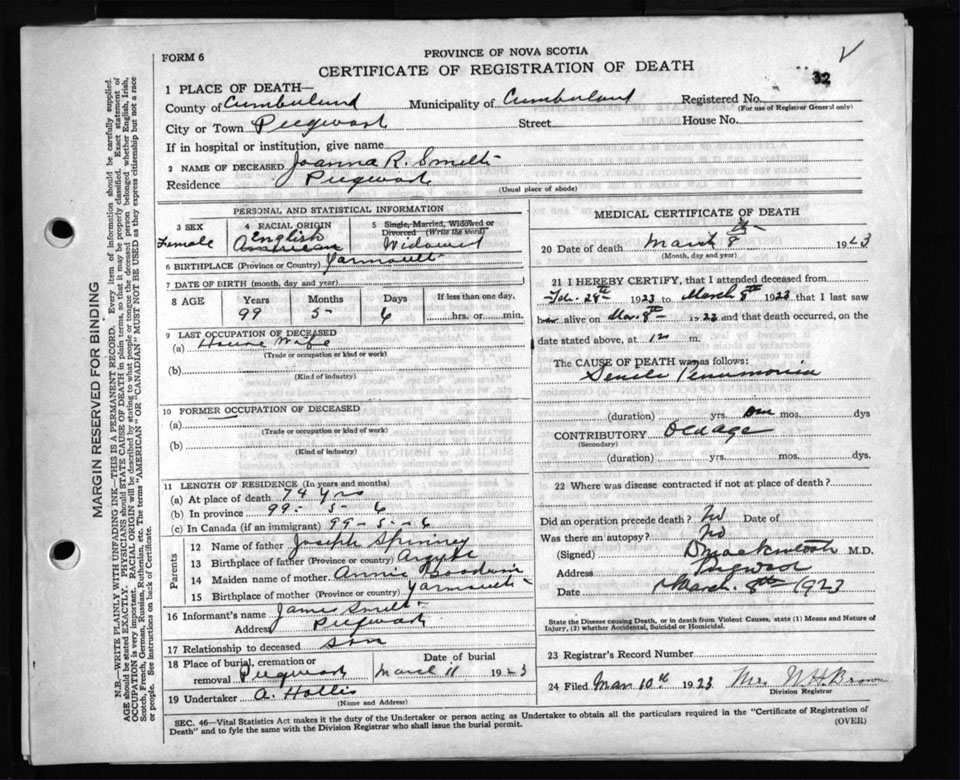 FORM 6
PROVINCE OF NOVA SCOTIA
CERTIFICATE OF REGISTRATION OF DEATH
32
1 PLACE OF DEATH—
County of Cumberland Municipality of Cumberland Registered No.
(For use of Registrar General only)
City or Town Pugwash Street House No.
If in hospital or institution, give name
2 NAME OF DECEASED Joanna R. Smith
Residence Pugwash
(Usual place of abode)
PERSONAL AND STATISTICAL INFORMATION
3 SEX 4 RACIAL ORIGIN 5 Single, Married, Widowed or Divorced (Write the word)
Female English American Widowed
6 BIRTHPLACE (Province or Country) Yarmouth
7 DATE OF BIRTH (month, day and year)
8 AGE Years Months Days If less than one day,
99 5 6 hrs. or min.
9 LAST OCCUPATION OF DECEASED
(a) House Wife
(Trade or occupation or kind or work)
(b)
(Kind of industry)
10 FORMER OCCUPATION OF DECEASED
(a)
(Trade or occupation or kind of work)
(b)
(Kind of industry)
11 LENGTH OF RESIDENCE (In years and months)
(a) At place of death 74 yrs
(b) In province 99-5-6
(c) In Canada (if an immigrant) 99-5-6
Parents
12 Name of father Joseph Spinney
13 Birthplace of father (Province or Country) Argyle
14 Maiden name of mother Annie Goodwin
15 Birthplace of mother (Province or Country) Yarmouth
16 Informant's name James Smith
Address Pugwash
17 Relationship to deceased son
18 Place of burial, cremation or removal Pugwash
Date of burial
March 11 1923
19 Undertaker A. Hollis
(Name and Address)
MEDICAL CERTIFICATE OF DEATH
20 Date of death March 8th 1923
(Month, day and year)
21 I HEREBY CERTIFY, that I attended deceased from
Feb. 28th 1923 to March 8th 1923 that I last saw
her alive on Mar. 8th 1923 and that death occurred, on the
date stated above, at 12 m.
The CAUSE OF DEATH was as follows:
Senile Pneumonia
(duration) yrs. one mos. dys
CONTRIBUTORY Old age
(Secondary)
(duration) yrs. mos. dys.
22 Where was disease contracted if not at place of death?
Did an operation precede death? No Date of
Was there an autopsy? No
(Signed) D Mackintosh M.D.
Address Pugwash
Date March 8th 1923
State the Disease causing Death, or in death from Violent Causes, state (1) Means and Nature of
Injury, (2) whether Accidental, Suicidal or Homicidal.
23 Registrar's Record Number
24 Filed Mar 10th 1923 Mrs W H Brown
Division Registrar
SEC. 46—Vital Statistics Act makes it the duty of the Undertaker or person acting as Undertaker to obtain all the particulars required in the "Certificate of Registration of
Death" and to fyle the same with the Division Registrar who shall issue the burial permit.
(OVER)
MARGIN RESERVED FOR BINDING
N.B.—WRITE PLAINLY WITH UNFADING INK—THIS IS A PERMANENT RECORD. Every item of information should be carefully supplied.
AGE should be stated EXACTLY. PHYSICIANS should STATE CAUSE OF DEATH in plain terms, so that it may be properly classified. Exact statement of
OCCUPATION is very important. RACIAL ORIGIN will be described by stating to what people or tongue the deceased person belonged whether English, Irish,
Scotch, French, German, Russian, Ruthenian, etc. The terms "AMERICAN" OR "CANADIAN" MUST NOT BE USED as they express citizenship but not a race
or people. See instructions on back of Certificate.